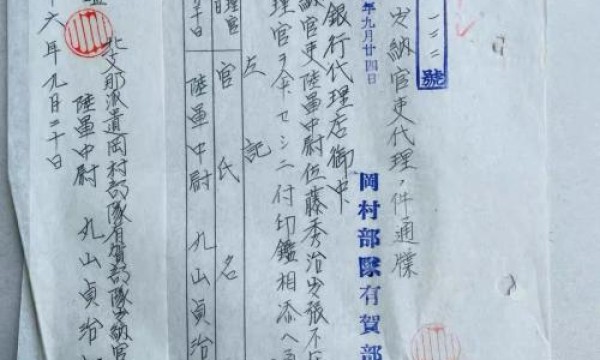 號
出納官吏代理ノ件通牒
年九月廿四日
岡村部隊有賀部
銀行代理店御中
納官吏陸軍中尉佐藤秀治出張不在
理官ヲ命セシニ付印鑑相添ヘ
左記
理官 官氏名
十日 陸軍中尉 丸山貞治
北支那派遣岡村部隊有賀部隊出納官
陸軍中尉 丸山貞治
十六年九月二十日